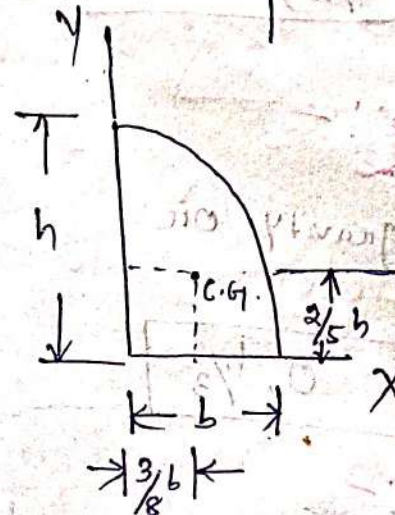 y
h
C.G.
2/5 h
X
b
3/8 b